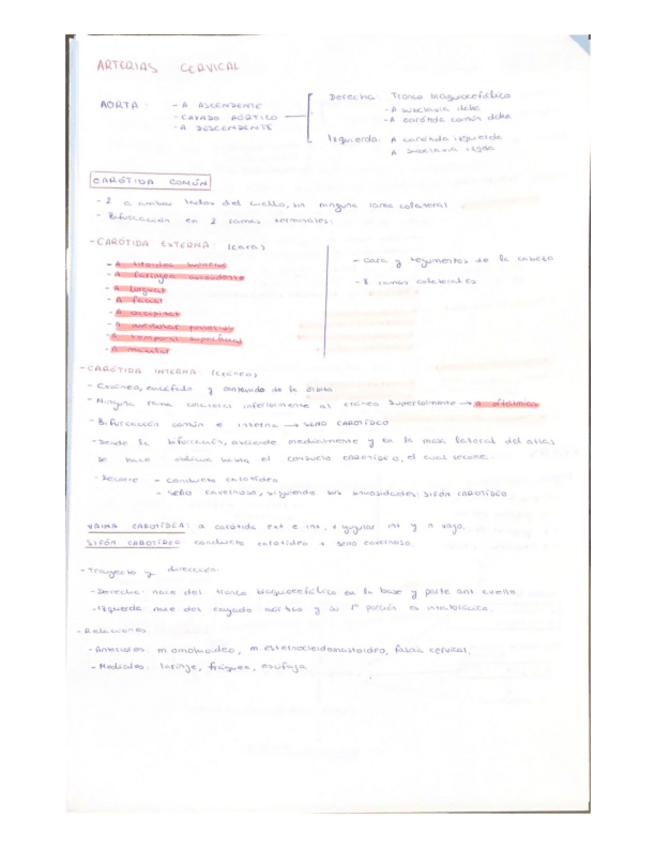 ARTERIAS CERVICAL
AORTA: - A ASCENDENTE
- CAYADO AÓRTICO
- A DESCENDENTE
Derecha: Tronco braquiocefálico
- A subclavia dcha
- A carótida común dcha
Izquierda: A carótida izquierda
A subclavia izqda
CARÓTIDA COMÚN
- 2 a ambos lados del cuello, sin ninguna rama colateral
- Bifurcación en 2 ramas terminales:
- CARÓTIDA EXTERNA: (cara)
- A tiroidea superior
- A faríngea ascendente
- A lingual
- A facial
- A occipital
- A auricular posterior
- A temporal superficial
- A maxilar
- cara y tegumentos de la cabeza
- 8 ramas colaterales
- CARÓTIDA INTERNA: (cráneo)
- Cráneo, encéfalo y contenido de la órbita
- Ninguna rama colateral inferiormente al cráneo. Superiormente → A oftálmica
- Bifurcación común e interna → SENO CAROTÍDEO
- Desde la bifurcación, asciende medialmente y en la masa lateral del atlas
se hace oblicua hasta el conducto CAROTÍDEO, el cual recorre.
- Recorre - conducto carotídeo
- seno cavernoso, siguiendo sus sinuosidades: SIFÓN CAROTÍDEO
VAINA CAROTÍDEA: a carótida ext e int, v yugular int y n vago.
SIFÓN CAROTÍDEO: conducto carotídeo + seno cavernoso.
- Trayecto y dirección:
- Derecha: nace del tronco braquiocefálico en la base y parte ant cuello
- Izquierda: nace del cayado aórtico y su 1ª porción es intratorácica.
- Relaciones
- Anteriores: m omohioideo, m esternocleidomastoideo, fascia cervical.
- Mediales: laringe, tráquea, esófago